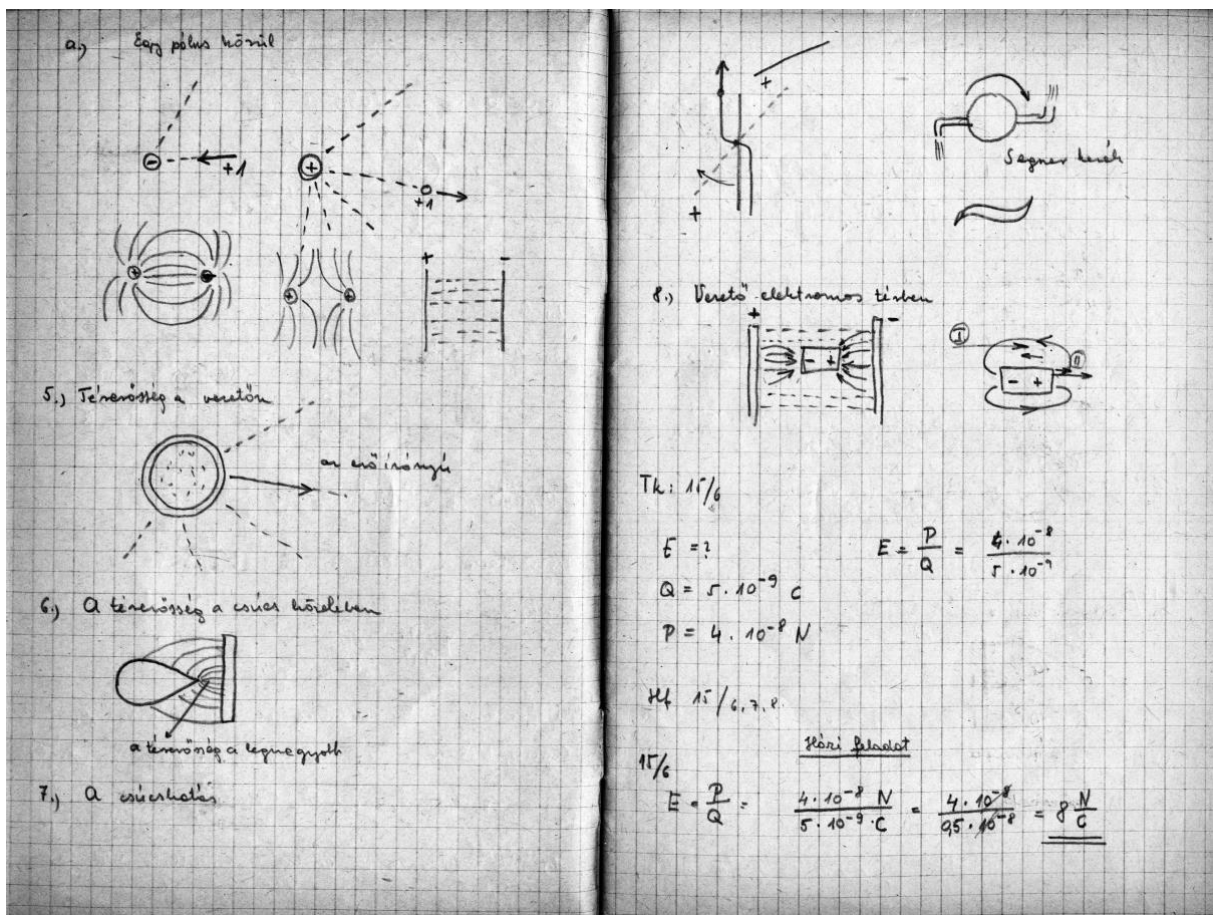 a.) Egy pólus körül
-
+1
+
+1
+
+
+
+ -
5.) Térerősség a vezetőn
az erő irányú
6.) A térerősség a csúcs közelében
a térerősség a legnagyobb
7.) A csúcshatás
+
+
Segner kerék
8.) Vezető elektromos térben
+ -
- +
I
II
- +
Tk: 15/6
E = ?
Q = 5 · 10⁻⁹ C
P = 4 · 10⁻⁸ N
E = P/Q = 4 · 10⁻⁸ / 5 · 10⁻⁹
Hf 15/6,7,8.
Házi feladat
15/6
E = P/Q = 4 · 10⁻⁸ N / 5 · 10⁻⁹ · C = 4 · 10⁻⁸ / 0,5 · 10⁻⁸ = 8 N/C